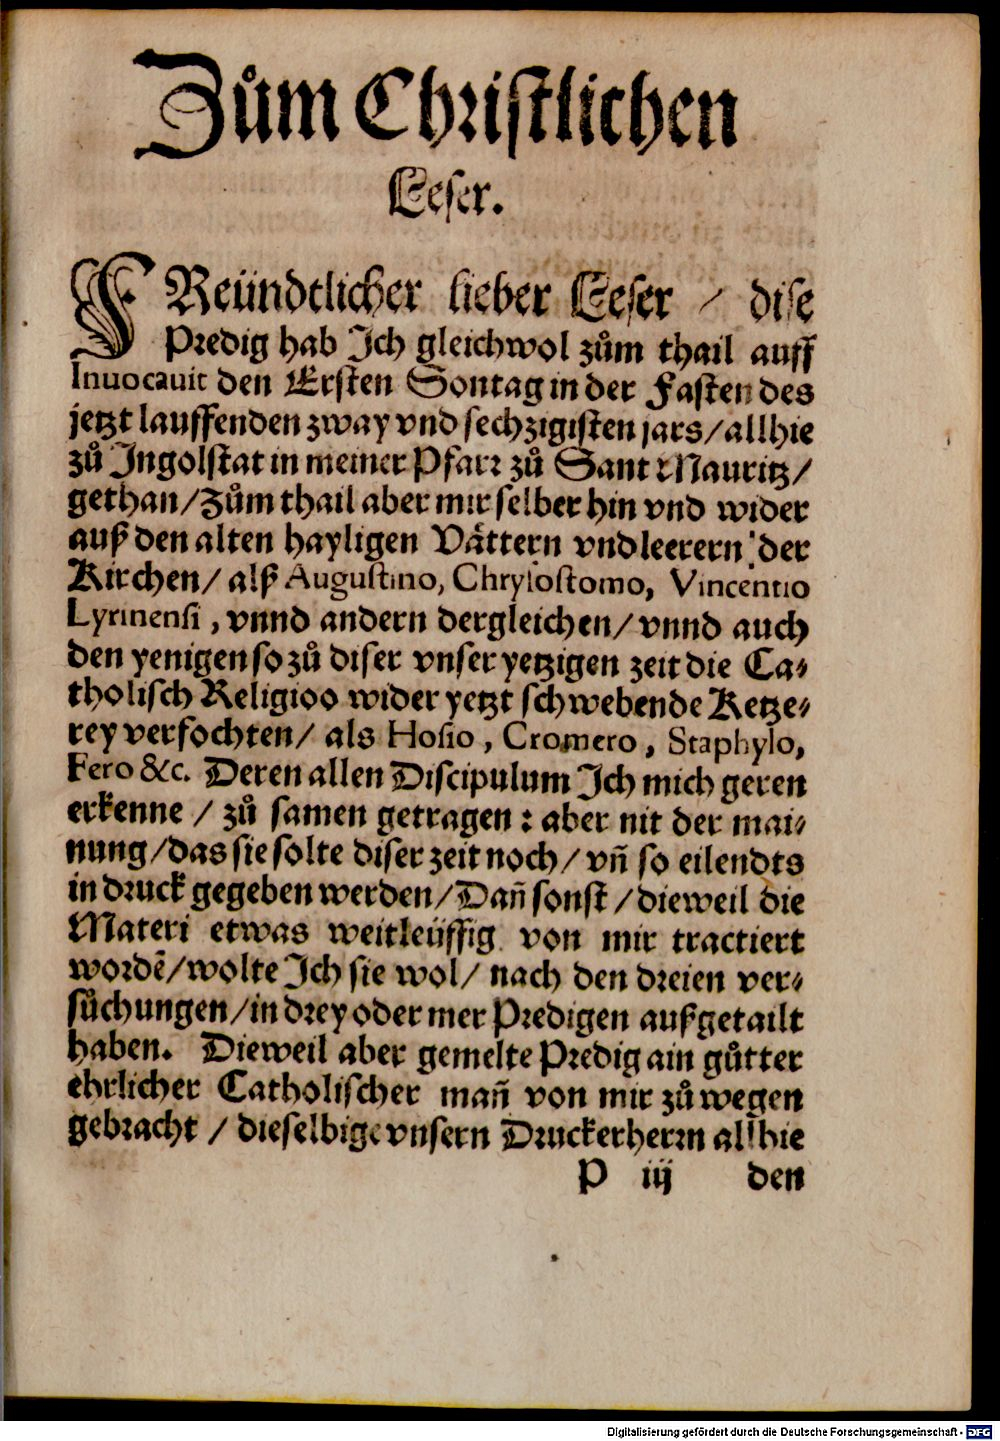 Zům Christlichen
Leser.
FReündtlicher lieber Leser / dise
Predig hab Ich gleichwol zům thail auff
Inuocauit den Ersten Sontag in der Fasten des
jetzt lauffenden zway vnd sechzigisten jars/allhie
zů Ingolstat in meiner Pfarr zů Sant Mauritz/
gethan/Zům thail aber mir selber hin vnd wider
auß den alten hayligen Vättern vnd leerern der
Kirchen/ alß Augustino, Chrysostomo, Vincentio
Lyrinensi, vnnd andern dergleichen/ vnnd auch
den yenigen so zů diser vnser yetzigen zeit die Ca-
tholisch Religioo wider yetzt schwebende Ketze-
rey verfochten/ als Hosio, Cromero, Staphylo,
Fero &c. Deren allen Discipulum Ich mich geren
erkenne / zů samen getragen : aber nit der mai-
nung/das sie solte diser zeit noch/ vñ so eilendts
in druck gegeben werden/Dañ sonst /dieweil die
Materi etwas weitleüffig von mir tractiert
wordẽ/wolte Ich sie wol/ nach den dreien ver-
sůchungen/in drey oder mer Predigen außgetailt
haben. Dieweil aber gemelte Predig ain gůtter
ehrlicher Catholischer mañ von mir zů wegen
gebracht / dieselbige vnsern Druckerherrn allhie
P iij den
Digitalisierung gefördert durch die Deutsche Forschungsgemeinschaft - DFG